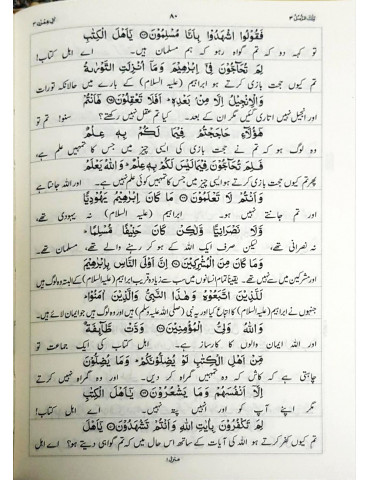 ۸۰
فَقُوْلُوا اشْهَدُوْا بِاَنَّا مُسْلِمُوْنَ۝ يٰٓاَهْلَ الْكِتٰبِ
تو کہہ دو کہ تم گواہ رہو کہ ہم مسلمان ہیں۔ اے اہل کتاب!
لِمَ تُحَآجُّوْنَ فِیْٓ اِبْرٰهِيْمَ وَمَآ اُنْزِلَتِ التَّوْرٰىةُ
تم کیوں حجت بازی کرتے ہو ابراہیم (علیہ السلام) کے بارے میں حالانکہ تورات
وَالْاِنْجِيْلُ اِلَّا مِنْۢ بَعْدِهٖ ؕ اَفَلَا تَعْقِلُوْنَ۝ هٰٓاَنْتُمْ
اور انجیل نہیں اتاری گئیں مگر ان کے بعد۔ کیا تم عقل نہیں رکھتے؟ سنو! تم تو
هٰٓؤُلَآءِ حَاجَجْتُمْ فِيْمَا لَكُمْ بِهٖ عِلْمٌ
وہ لوگ ہو کہ تم نے حجت بازی کی ایسی چیز میں جس کا تمہیں علم ہے،
فَلِمَ تُحَآجُّوْنَ فِيْمَا لَيْسَ لَكُمْ بِهٖ عِلْمٌ ؕ وَاللّٰهُ يَعْلَمُ
پھر تم کیوں حجت بازی کرتے ہو ایسی چیز میں جس کا تمہیں کوئی علم نہیں۔ اور اللہ جانتا ہے
وَاَنْتُمْ لَا تَعْلَمُوْنَ۝ مَا كَانَ اِبْرٰهِيْمُ يَهُوْدِيًّا
اور تم جانتے نہیں ہو۔ ابراہیم (علیہ السلام) نہ یہودی تھے،
وَّلَا نَصْرَانِيًّا وَّلٰكِنْ كَانَ حَنِيْفًا مُّسْلِمًا ؕ
نہ نصرانی تھے، لیکن صرف ایک اللہ کے ہو کر رہنے والے تھے، مسلمان تھے۔
وَمَا كَانَ مِنَ الْمُشْرِكِيْنَ۝ اِنَّ اَوْلَى النَّاسِ بِاِبْرٰهِيْمَ
اور مشرکین میں سے نہیں تھے۔ یقینا تمام انسانوں میں سب سے زیادہ قریب ابراہیم (علیہ السلام) کے البتہ وہ لوگ ہیں
لَلَّذِيْنَ اتَّبَعُوْهُ وَهٰذَا النَّبِیُّ وَالَّذِيْنَ اٰمَنُوْا ؕ
جنہوں نے ابراہیم (علیہ السلام) کا اتباع کیا اور یہ نبی (صلی اللہ علیہ وسلم) ہیں اور وہ لوگ ہیں جو ایمان لائے ہیں۔
وَاللّٰهُ وَلِیُّ الْمُؤْمِنِيْنَ۝ وَدَّتْ طَّآئِفَةٌ
اور اللہ ایمان والوں کا کارساز ہے۔ اہل کتاب کی ایک جماعت تو
مِّنْ اَهْلِ الْكِتٰبِ لَوْ يُضِلُّوْنَكُمْ ؕ وَمَا يُضِلُّوْنَ
چاہتی ہے کہ کاش کہ وہ تمہیں گمراہ کر دیں۔ اور وہ گمراہ نہیں کرتے
اِلَّآ اَنْفُسَهُمْ وَمَا يَشْعُرُوْنَ۝ يٰٓاَهْلَ الْكِتٰبِ
مگر اپنے آپ کو اور انہیں پتہ نہیں۔ اے اہل کتاب!
لِمَ تَكْفُرُوْنَ بِاٰيٰتِ اللّٰهِ وَاَنْتُمْ تَشْهَدُوْنَ۝ يٰٓاَهْلَ
تم کیوں کفر کرتے ہو اللہ کی آیات کے ساتھ اس حال میں کہ تم گواہی دیتے ہو؟ اے اہل